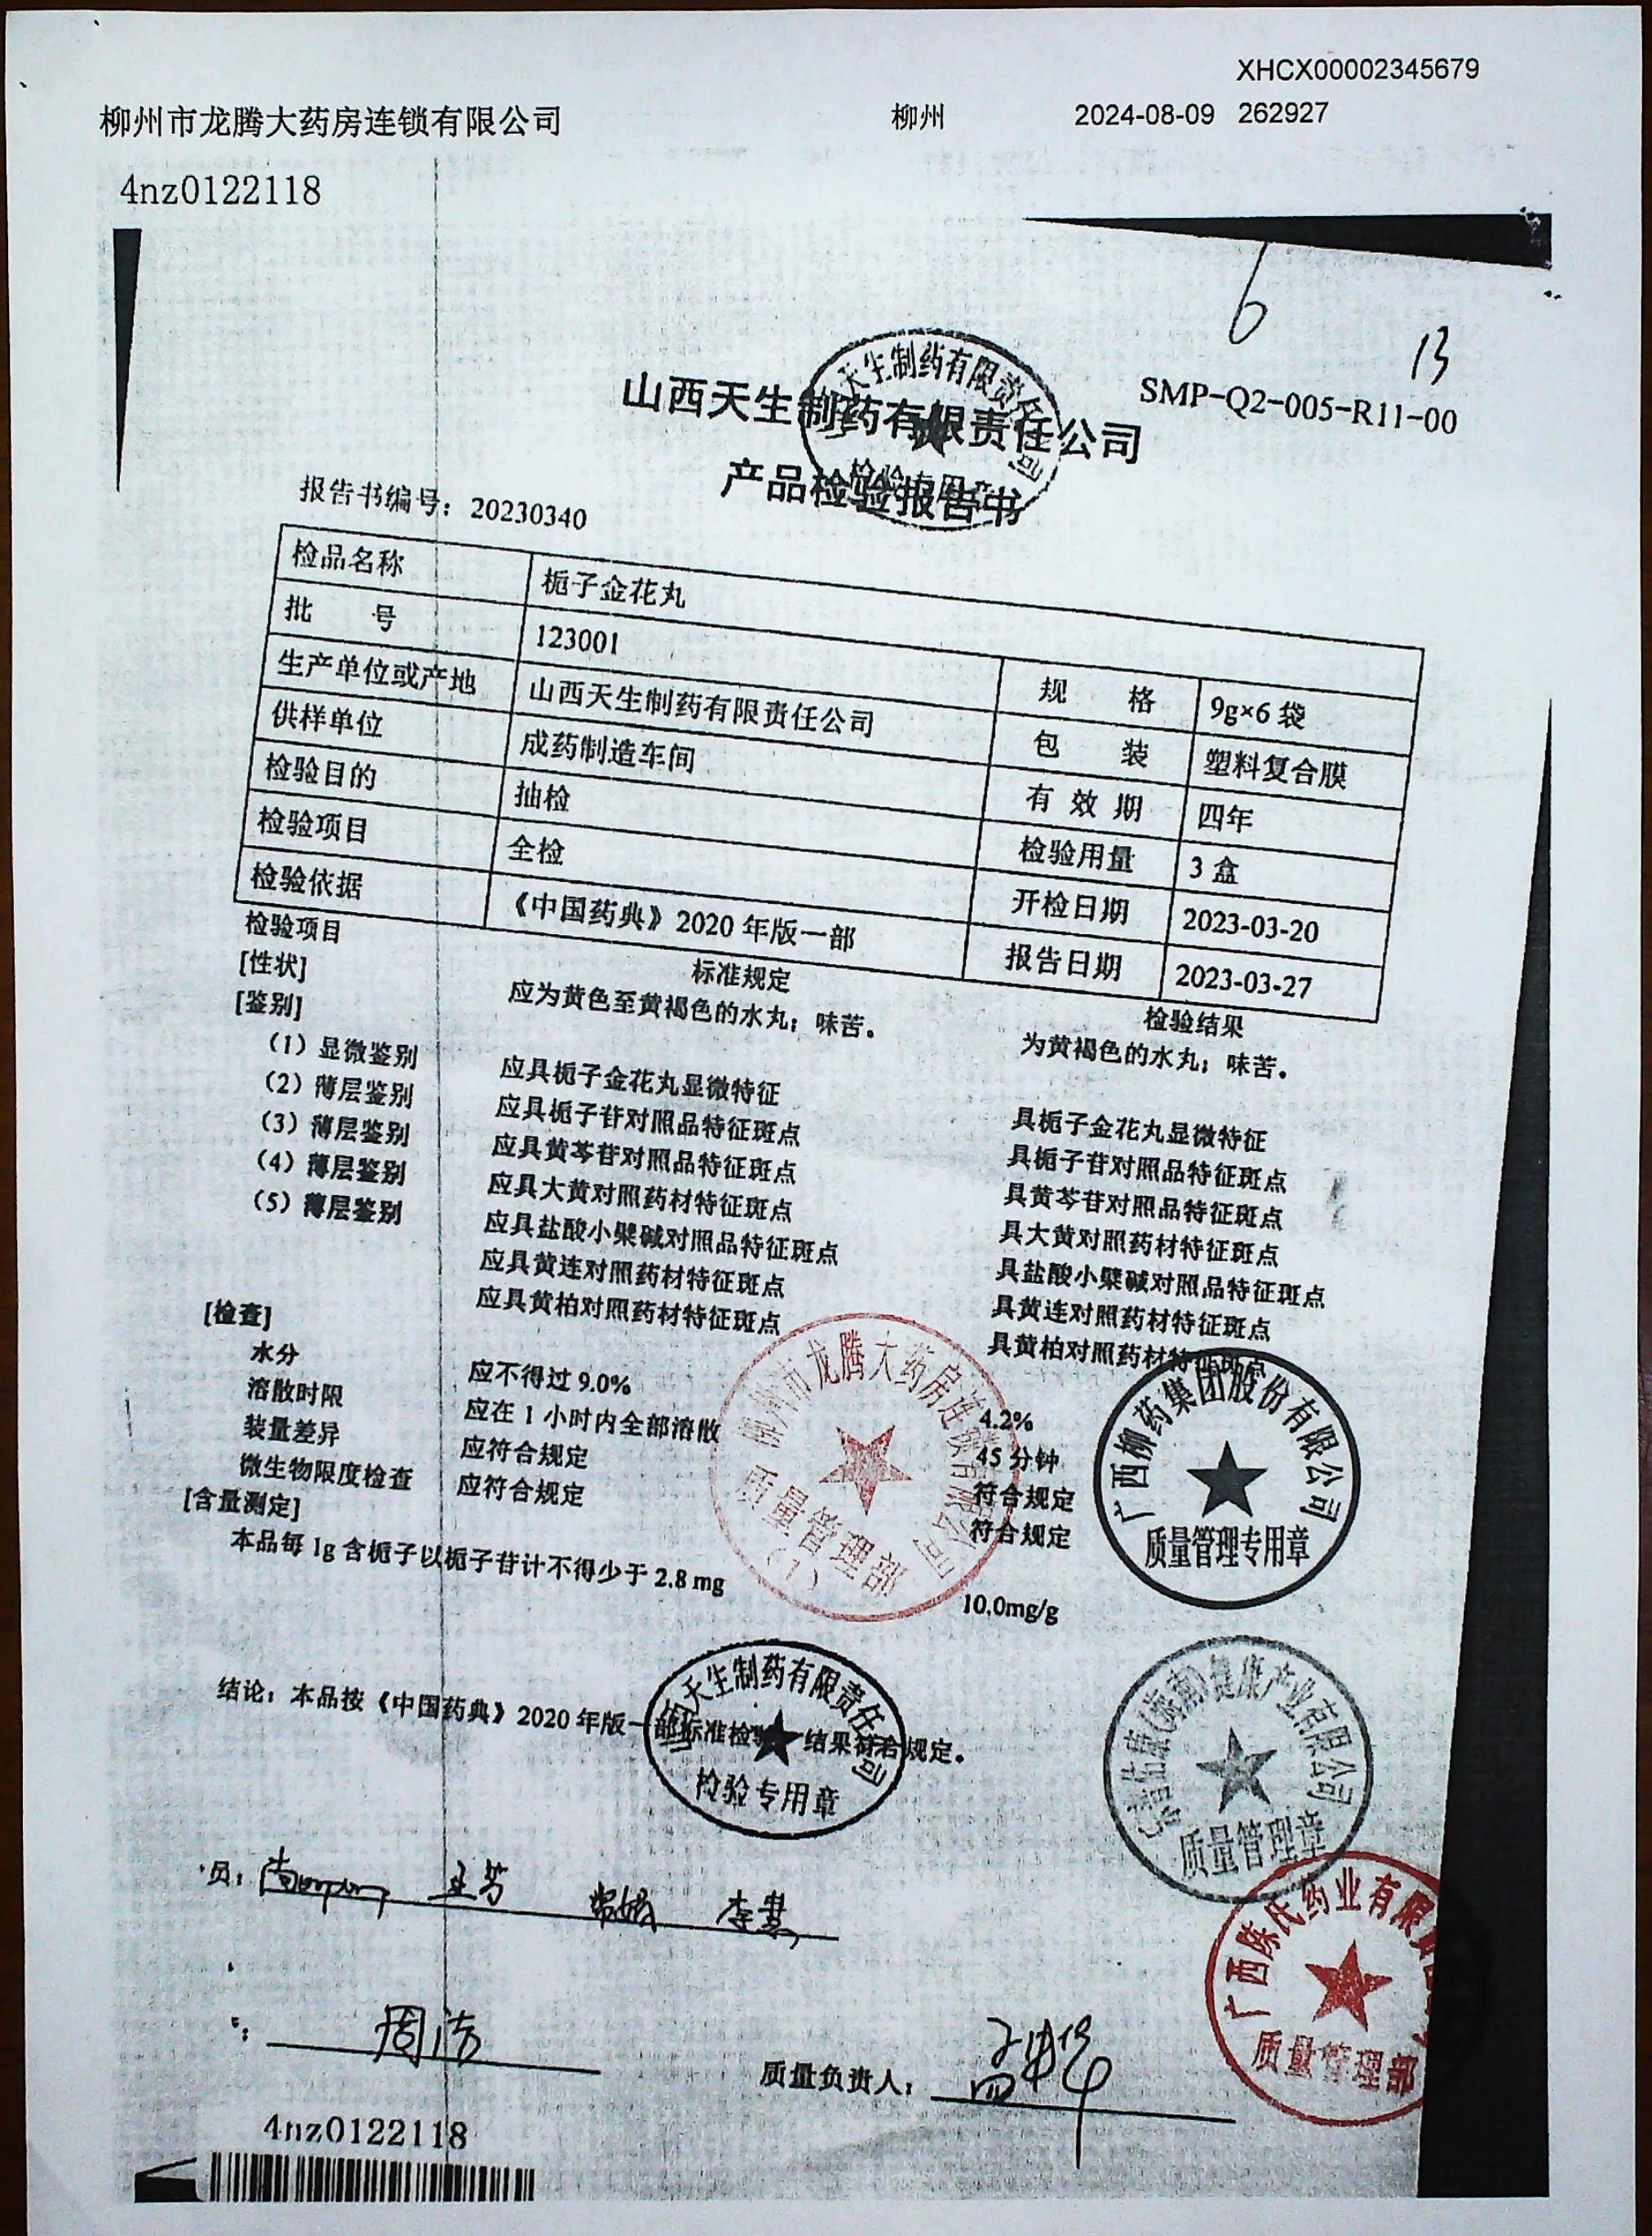 XHCX00002345679
柳州市龙腾大药房连锁有限公司 柳州 2024-08-09 262927
4nz0122118
6
13
SMP-Q2-005-R11-00
山西天生制药有限责任公司
产品检验报告书
报告书编号：20230340
检品名称 栀子金花丸
批 号 123001 规 格 9g×6 袋
生产单位或产地 山西天生制药有限责任公司 包 装 塑料复合膜
供样单位 成药制造车间 有 效 期 四年
检验目的 抽检 检验用量 3 盒
检验项目 全检 开检日期 2023-03-20
检验依据 《中国药典》2020 年版一部 报告日期 2023-03-27
检验项目 标准规定 检验结果
[性状] 应为黄色至黄褐色的水丸；味苦。 为黄褐色的水丸；味苦。
[鉴别]
（1）显微鉴别 应具栀子金花丸显微特征 具栀子金花丸显微特征
（2）薄层鉴别 应具栀子苷对照品特征斑点 具栀子苷对照品特征斑点
（3）薄层鉴别 应具黄芩苷对照品特征斑点 具黄芩苷对照品特征斑点
（4）薄层鉴别 应具大黄对照药材特征斑点 具大黄对照药材特征斑点
（5）薄层鉴别 应具盐酸小檗碱对照品特征斑点 具盐酸小檗碱对照品特征斑点
应具黄连对照药材特征斑点 具黄连对照药材特征斑点
应具黄柏对照药材特征斑点 具黄柏对照药材特征斑点
[检查]
水分 应不得过 9.0% 4.2%
溶散时限 应在 1 小时内全部溶散 45 分钟
装量差异 应符合规定 符合规定
微生物限度检查 应符合规定 符合规定
[含量测定]
本品每 1g 含栀子以栀子苷计不得少于 2.8 mg 10.0mg/g
柳州市龙腾大药房连锁有限公司
质量管理部
（1）
广西柳药集团股份有限公司
质量管理专用章
结论：本品按《中国药典》2020 年版一部标准检验 结果符合规定。
天生制药有限责任公司
检验专用章
健康产业有限公司
质量管理章
员： 王芳 李慧
广西陈氏药业有限
质量管理部
：周洁
质量负责人：
4nz0122118